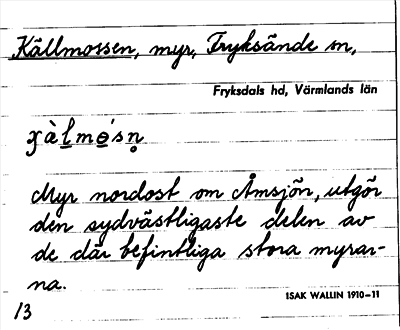 Källmossen, myr, Fryksände sn,
Fryksdals hd, Värmlands län
Myr nordost om Åmsjön, utgör
den sydvästligaste delen av
de där befintliga stora myrar-
na.
ISAK WALLIN 1910–11
13